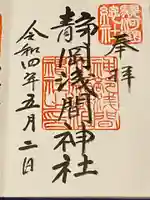 奉拝
静岡浅間神社
令和四年五月二日